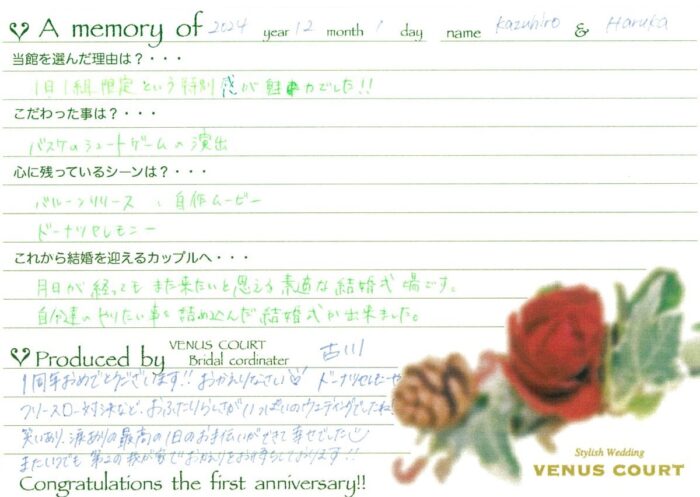 A memory of 2024 year 12 month 1 day name Kazuhiro & Haruka
当館を選んだ理由は？・・・
1日1組限定という特別感が魅力でした!!
こだわった事は？・・・
バスケのシュートゲームの演出
心に残っているシーンは？・・・
バルーンリリース 自作ムービー
ドーナツセレモニー
これから結婚を迎えるカップルへ・・・
月日が経ってもまた来たいと思える素適な結婚式場です。
自分達のやりたい事を詰め込んだ結婚式が出来ました。
Produced by VENUS COURT Bridal cordinater 古川
1周年おめでとうございます!! おかえりなさい♡ ドーナツセレモニーや
フリースロー対決など、おふたりらしさがいっぱいのウェディングでしたね!
笑いあり、涙ありの最高の1日のお手伝いができて幸せでした
またいつでも第二の我が家でおかえりをお待ちしております!!
Congratulations the first anniversary!!
Stylish Wedding
VENUS COURT